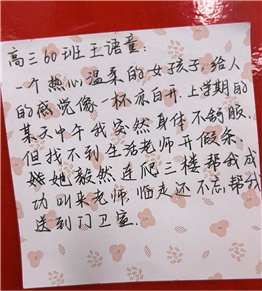 高三60班王语童:
一个热心温柔的女孩子,给人
的感觉像一杯凉白开.上学期的
某天中午我突然身体不舒服.
但找不到生活老师开假条,
她毅然连爬三楼帮我成
功叫来老师,临走还不忘帮我
送到门卫室.